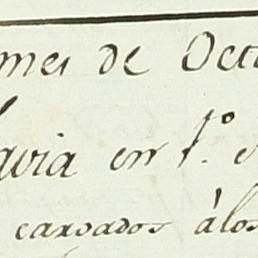 mes de Octu
avia en 1.º d
cargados á los